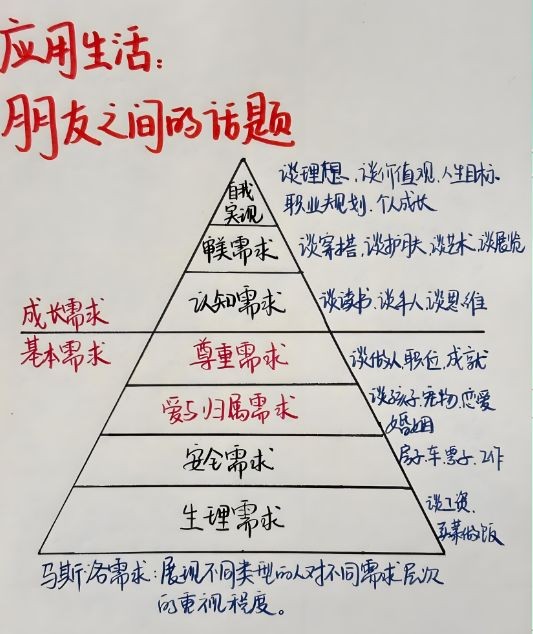 应用生活：
朋友之间的话题
自我
实现
谈理想、谈价值观、人生目标、
职业规划、个人成长
审美需求
谈穿搭、谈护肤、谈艺术、谈展览
认知需求
谈读书、谈牛人、谈思维
成长需求
基本需求
尊重需求
谈做人、职位、成就
爱与归属需求
谈孩子、宠物、恋爱
婚姻
安全需求
房子、车、票子、工作
生理需求
谈工资、
买菜做饭
马斯洛需求：展现不同类型的人对不同需求层次
的重视程度。